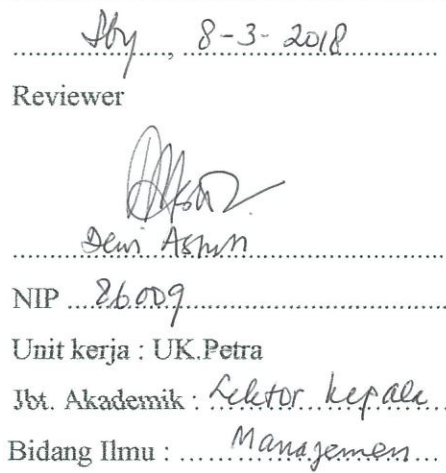 Sby, 8-3-2018
Reviewer
Dewi Astuti
NIP 86009
Unit kerja : UK.Petra
Jbt. Akademik : Lektor kepala
Bidang Ilmu : Manajemen